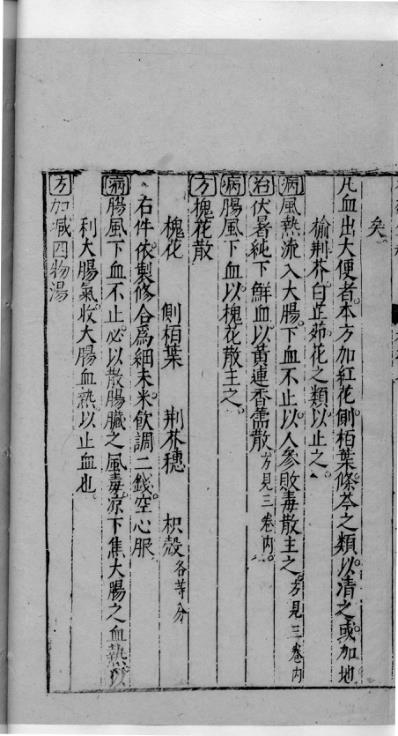 矣
凡血出大便者本方加紅花側栢葉條芩之類以清之或加地
榆荆芥白芷茆花之類以止之
病風熱流入大腸下血不止以人參敗毒散主之方見三卷内
治伏暑純下鮮血以黄連香薷散方見三卷内
病腸風下血以槐花散主之
方槐花散
槐花 側栢葉 荆芥穗 枳殻各等分
右件依製修合爲細末米飲調二錢空心服
病腸風下血不止必以散腸臟之風毒凉下焦大腸之血熱以
利大腸氣收大腸血熱以止血也
方加减四物湯